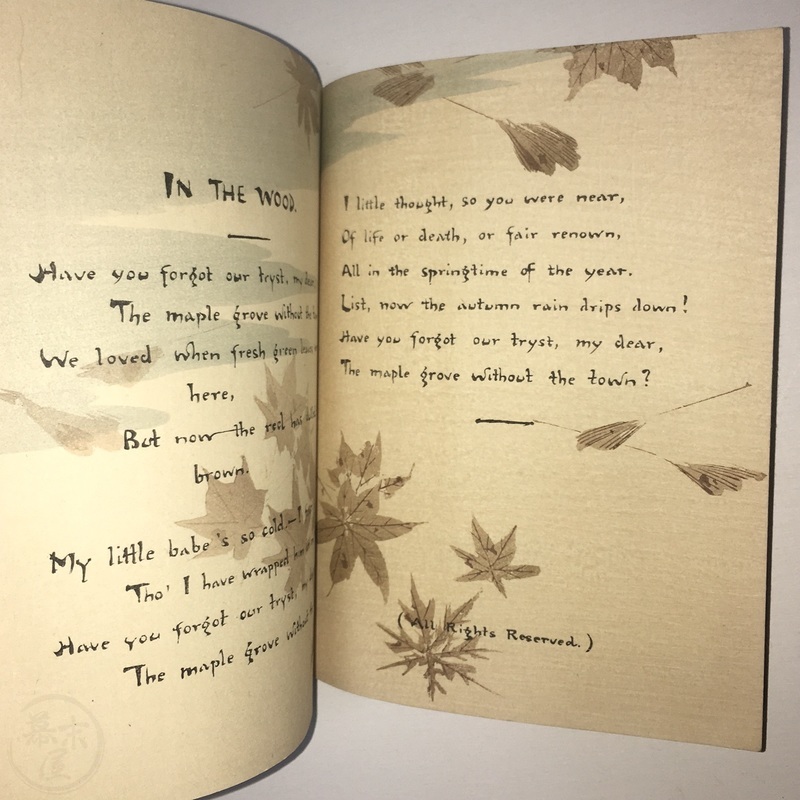 IN THE WOOD.
Have you forgot our tryst, my dear
The maple grove without the
We loved when fresh green
here,
But now the red has
brown.
My little babe's so cold,—I
Tho' I have wrapped him
Have you forgot our tryst, my
The maple grove without
I little thought, so you were near,
Of life or death, or fair renown,
All in the springtime of the year.
List, now the autumn rain drips down!
Have you forgot our tryst, my dear,
The maple grove without the town?
(All Rights Reserved.)
幕末堂